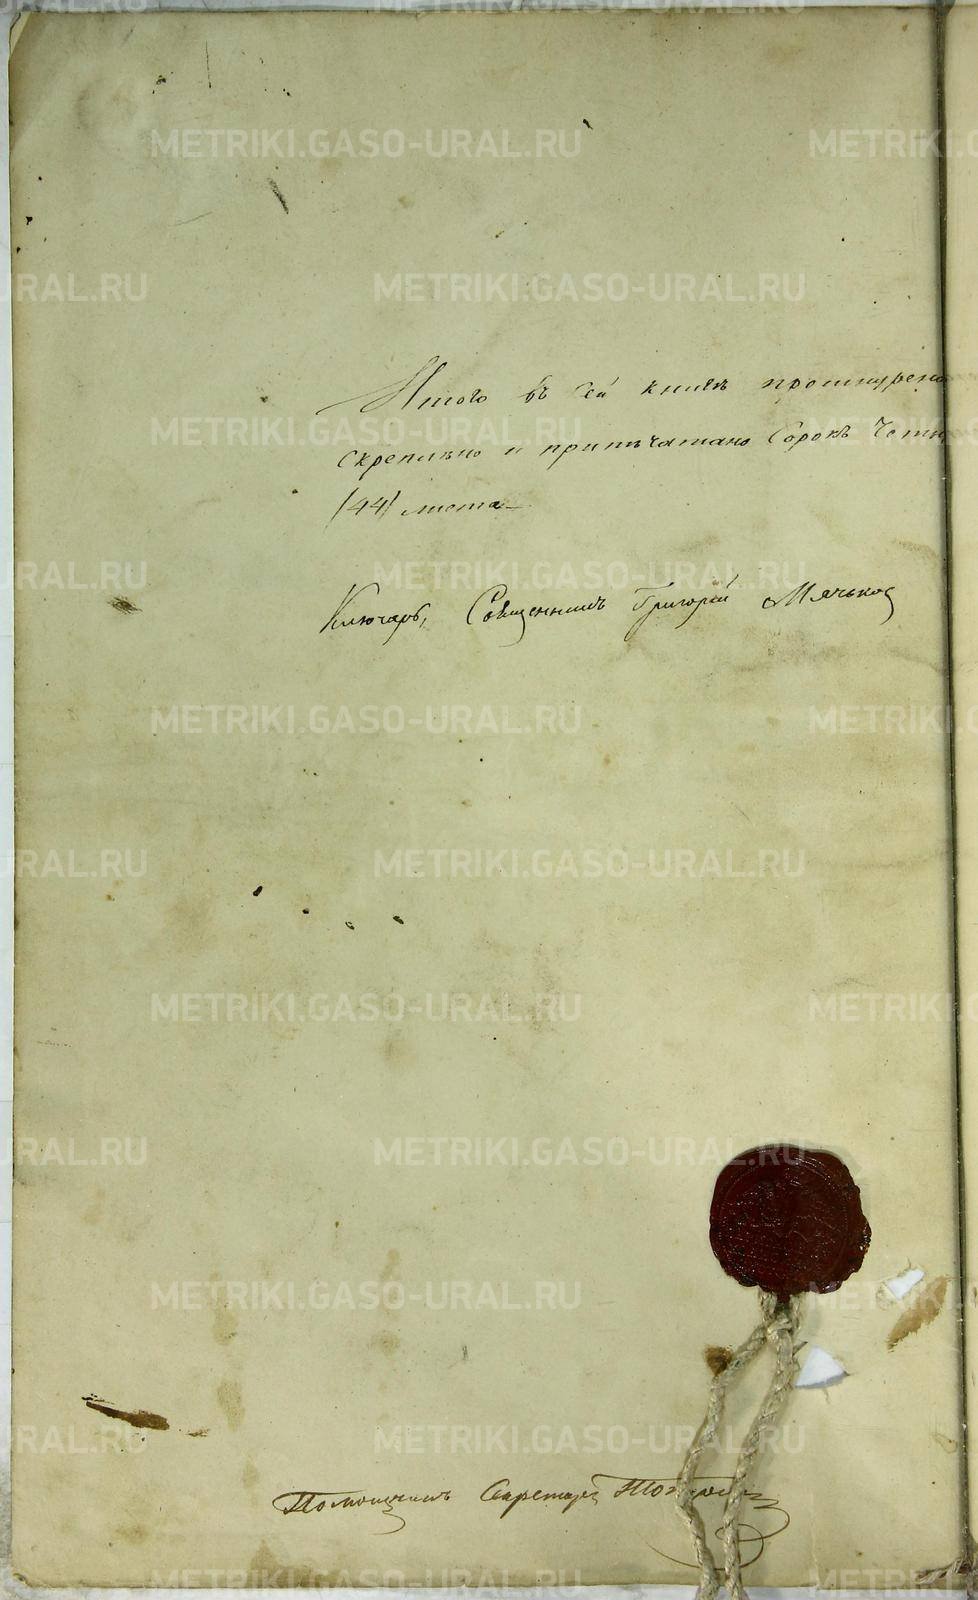 Итого въ сей книгѣ прошнурено
скрепллено и припѣчатано Сорокъ Четы
/44/ листа
Ключарь, Священникъ Григорій Мячьков
Помощникъ Секретаря
METRIKI.GASO-URAL.RU